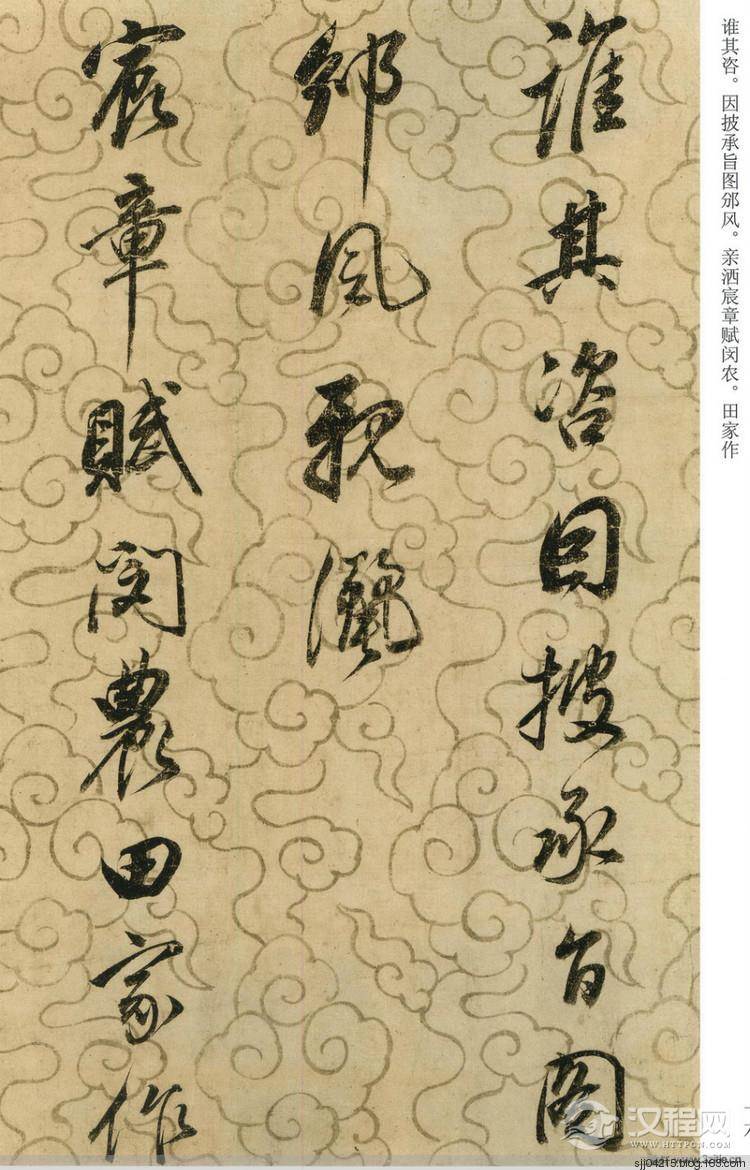 谁其咨。因披承旨图邠风。亲洒宸章赋闵农。田家作
誰其咨因披承旨图
邠風親灑
宸章賦閔農田家作
汉程网
WWW.HTTPCN.COM
sjj04215.blog.163.com